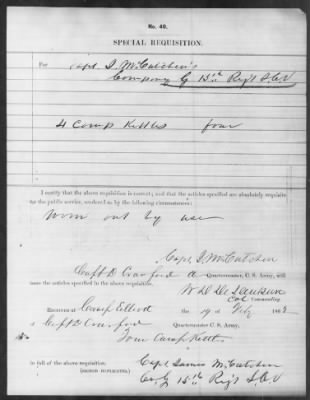 No. 40.
SPECIAL REQUISITION.
For Capt. J. McCutchen's
Company G 15th Reg't S.C.V
4 Camp Kettles four
I certify that the above requisition is correct; and that the articles specified are absolutely requisite
for the public service, rendered so by the following circumstances:
Worn out by use
Capt. J. McCutchen
Capt D Crawford A Quartermaster, C. S. Army, will
issue the articles specified in the above requisition.
Col Commanding.
RECEIVED at Camp Elliott the 19 of July 186
of Capt D Crawford Quartermaster C. S. Army,
Four Camp Kettles
in full of the above requisition. Capt. James McCutchen
(SIGNED DUPLICATES.) Co. G 15th Reg't S.C.V